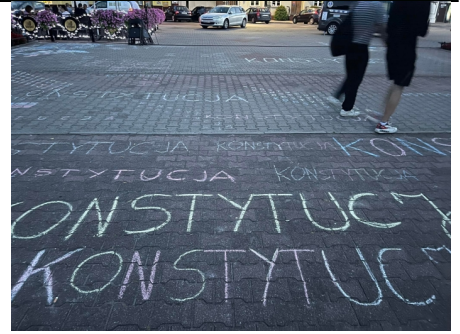 KONSTY
KONSTYTUCJA
STYTUCJA KONSTYTUCJA KONS
NSTYTUCJA KONSTYTUCJA
KONSTYTUCJ
KONSTYTUC